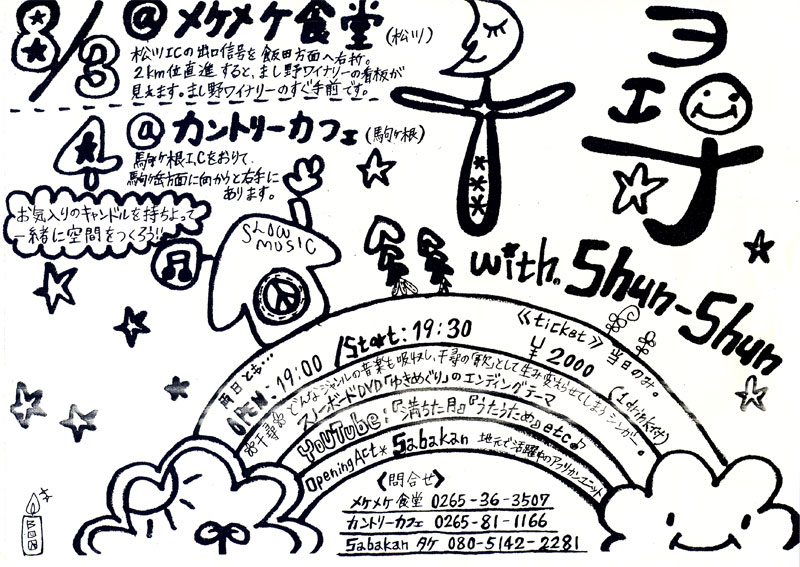 8/3 @ メケメケ食堂 (松川)
松川ICの出口信号を飯田方面へ右折。
2km位直進すると、まし野ワイナリーの看板が
見えます。まし野ワイナリーのすぐ手前です。
4 @ カントリーカフェ (駒ヶ根)
駒ヶ根I.Cをおりて、
駒ヶ岳方面に向かうと右手に
あります。
お気入りのキャンドルを持ちよって
一緒に空間をつくろう!!
千尋
with. Shun-Shun
SLOW
MUSIC
両日とも…
OPEN: 19:00 / Start: 19:30
《ticket》当日のみ。
¥2000
(1drink付)
千尋 どんなジャンルの音楽も吸収し、千尋の「歌」として生み変わらせてしまうシンガー。
スノーボードDVD「ゆきめぐり」のエンディングテーマ
YouTube:『満ちた月』『うたうため』etc♪
Opening Act* Sabakan 地元で活躍中のアフリカンユニット
《問合せ》
メケメケ食堂 0265-36-3507
カントリーカフェ 0265-81-1166
Sabakan タケ 080-5142-2281